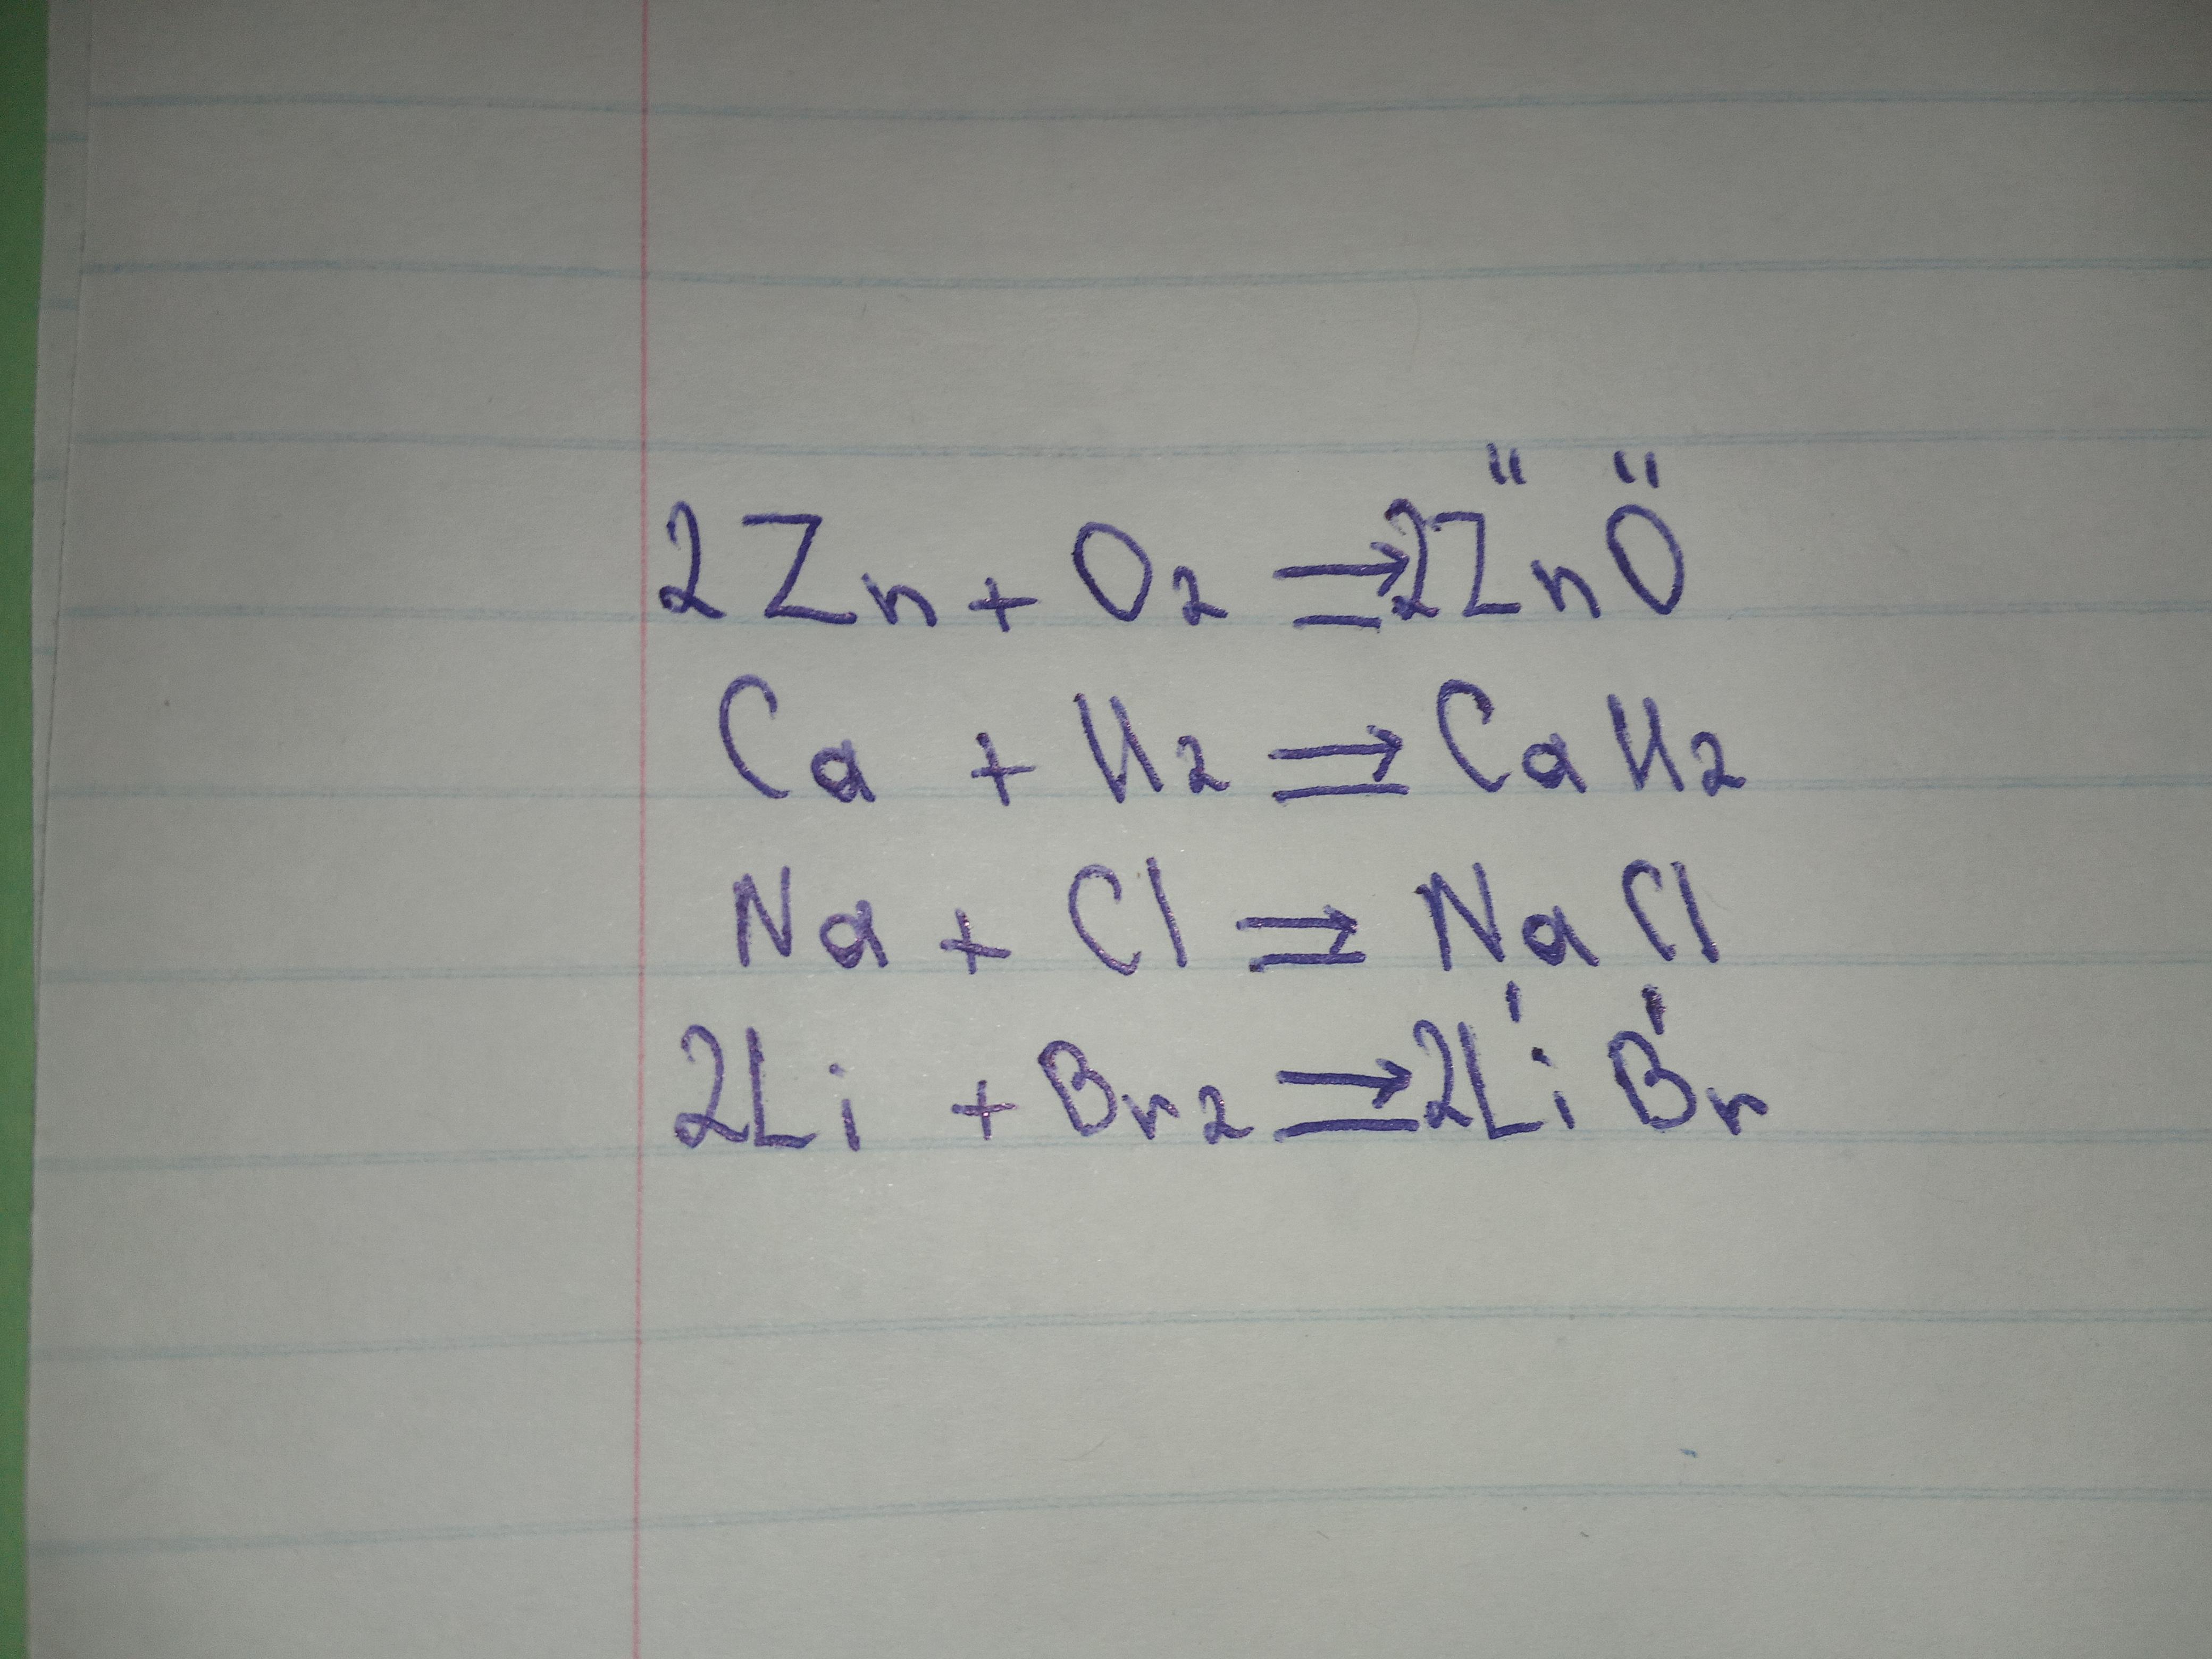 2Zn + O2 ⇒ 2ZnO
Ca + H2 ⇒ CaH2
Na + Cl ⇒ NaCl
2Li + Br2 ⇒ 2LiBr